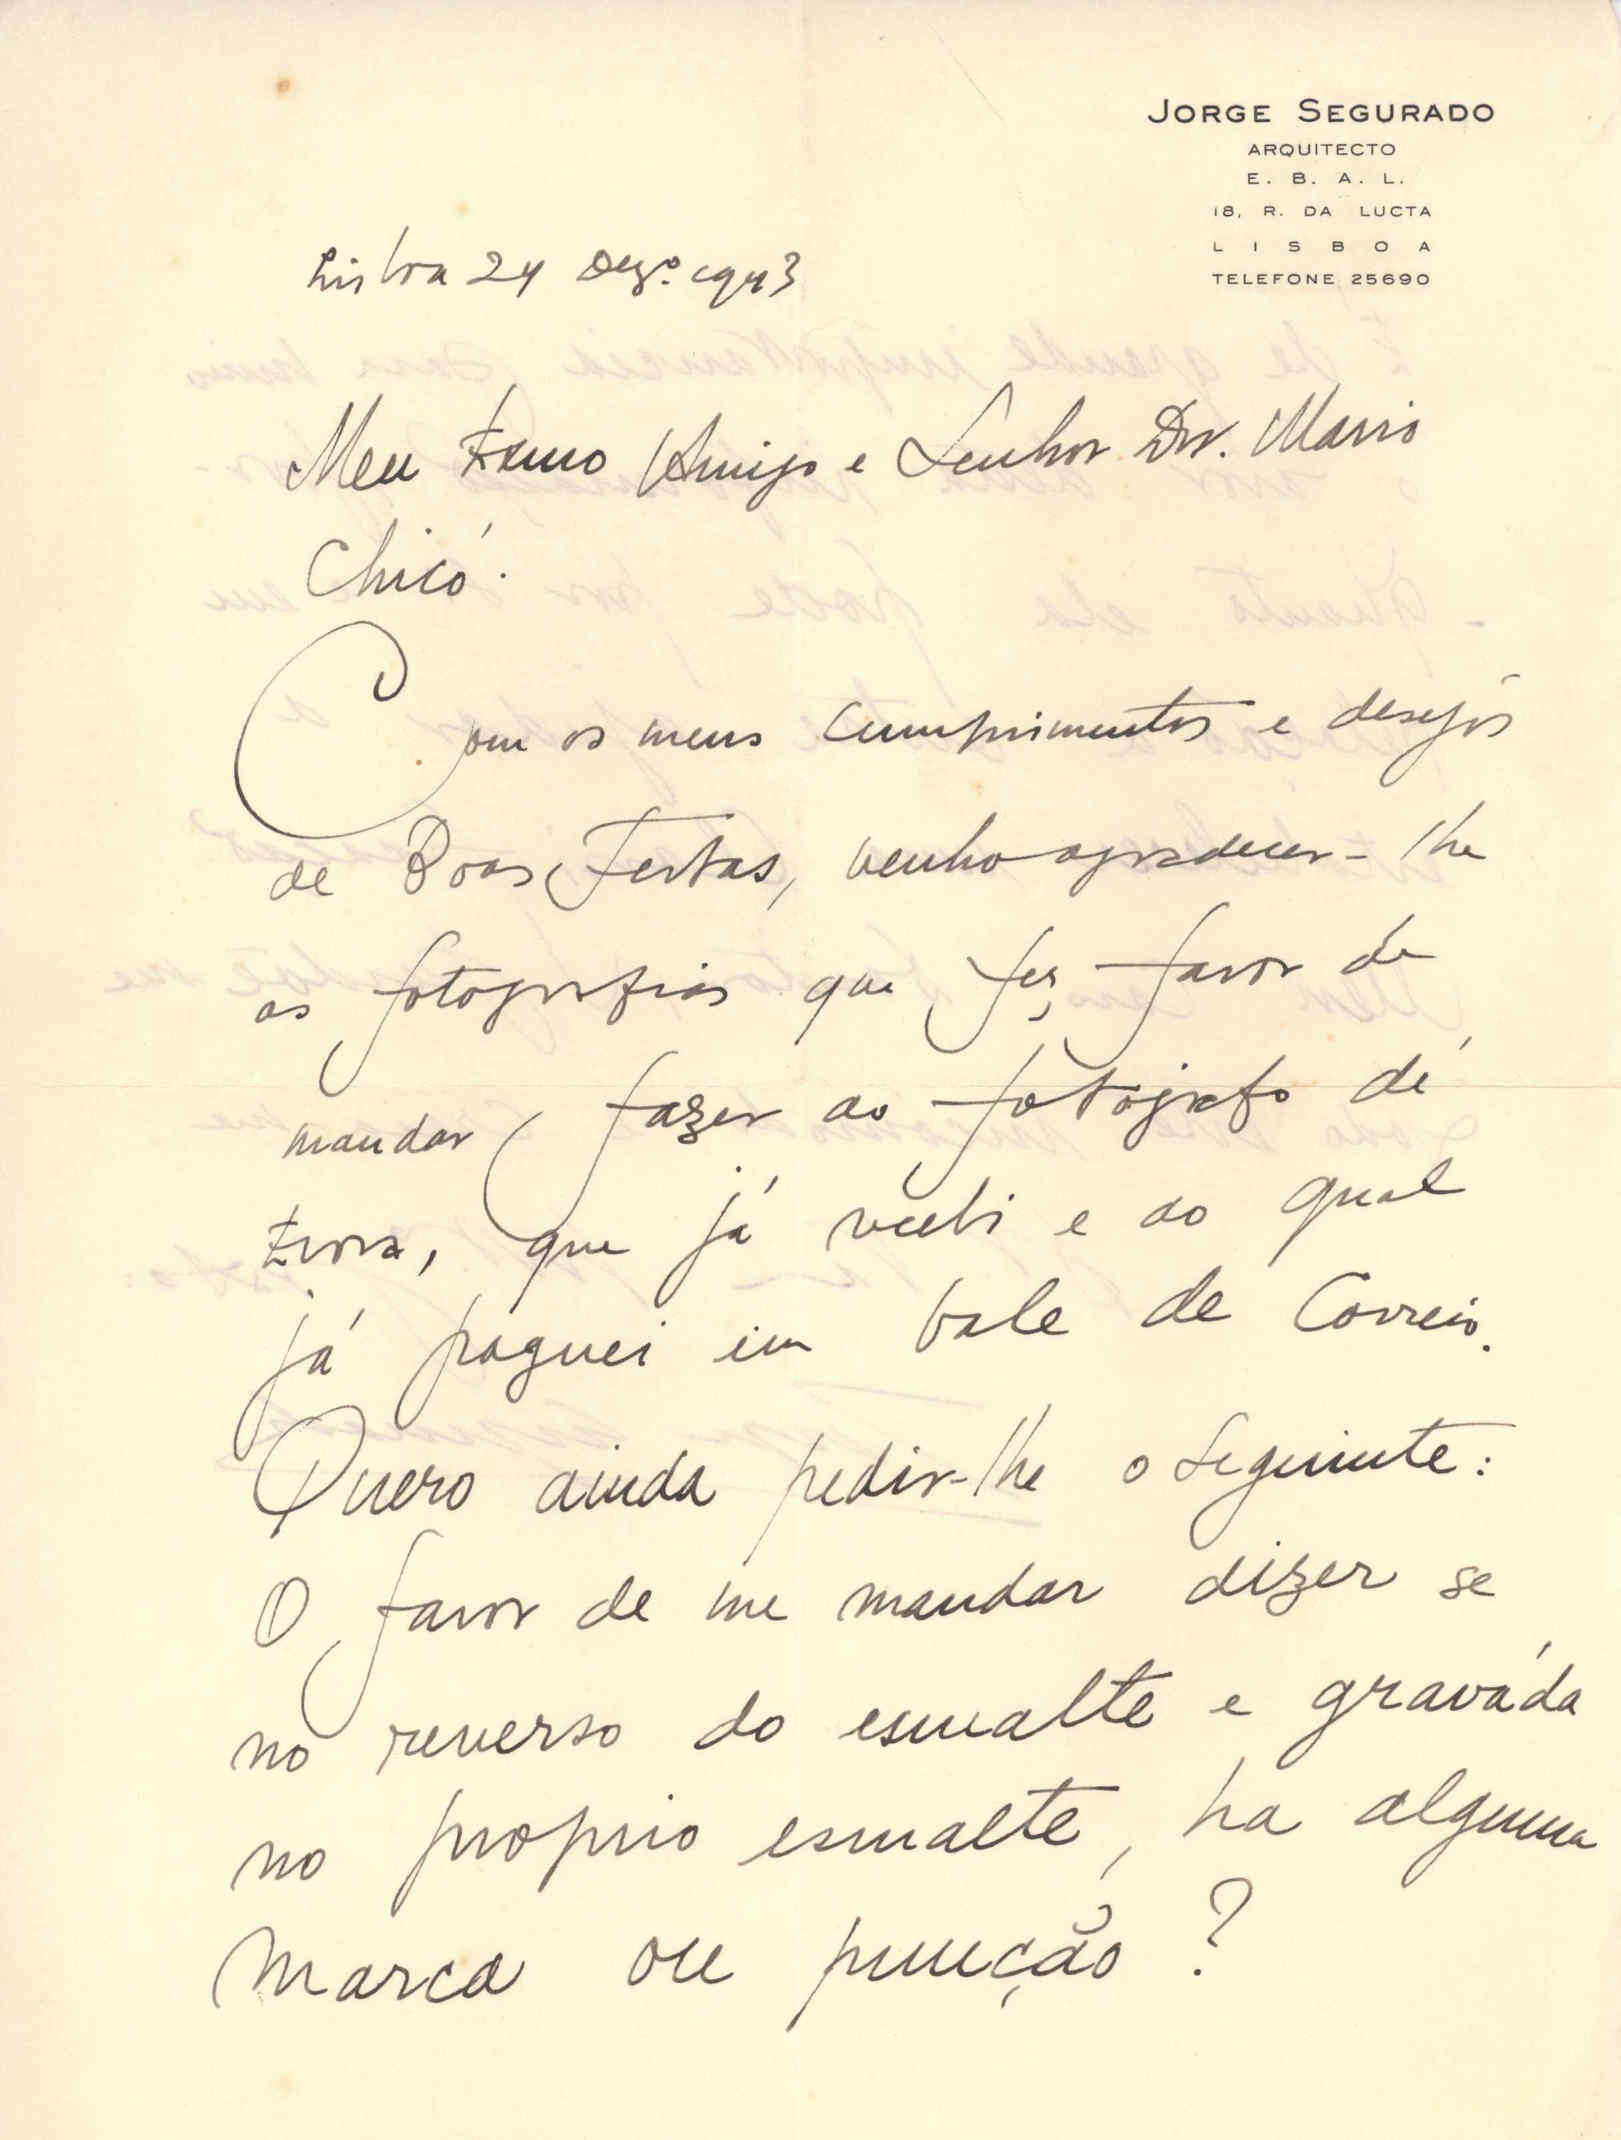 JORGE SEGURADO
ARQUITECTO
E. B. A. L.
18, R. DA LUCTA
LISBOA
TELEFONE 25690
Lisboa 24 Dezº. 1943
Meu Exmo Amigo e Senhor Dr. Mario
Chicó.
Com os meus cumprimentos e desejos
de Boas Festas, venho agradecer-lhe
as fotografias que fez favor de
mandar fazer ao fotógrafo de
Evora, que já recebi e ao qual
já paguei em vale de Correio.
Quero ainda pedir-lhe o seguinte:
O favor de me mandar dizer se
no reverso do esmalte e graváda
no proprio esmalte, ha alguma
marca ou punção?